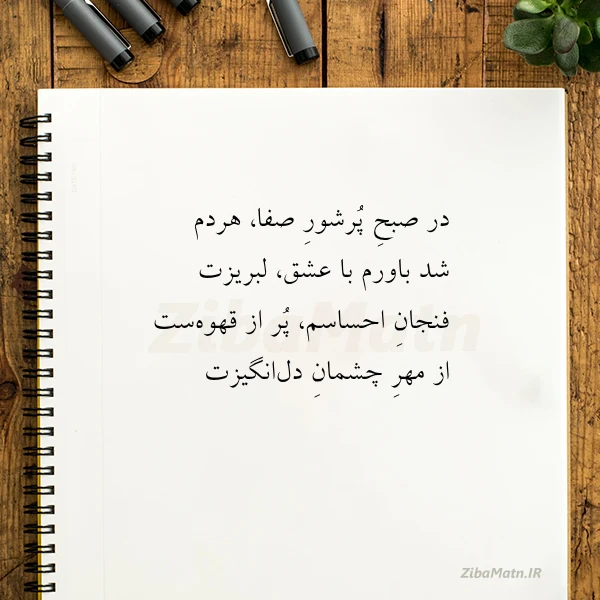 در صبحِ پُرشورِ صفا، هردم
شد باورم با عشق، لبریزت
فنجانِ احساسم، پُر از قهوه‌ست
از مهرِ چشمانِ دل‌انگیزت
ZibaMatn
ZibaMatn.IR